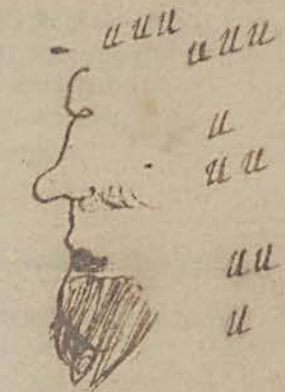 uuu
uuu
u
uu
uu
u